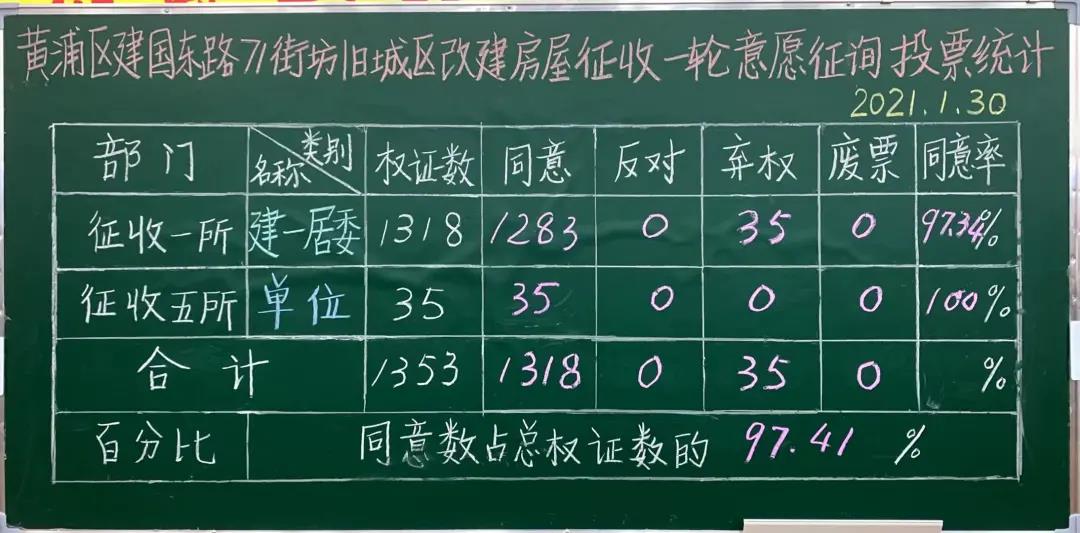 黄浦区建国东路71街坊旧城区改建房屋征收一轮意愿征询投票统计
2021.1.30
部门 名称 类别 权证数 同意 反对 弃权 废票 同意率
征收一所 建一居委 1318 1283 0 35 0 97.34%
征收五所 单位 35 35 0 0 0 100%
合计 1353 1318 0 35 0 %
百分比 同意数占总权证数的 97.41 %